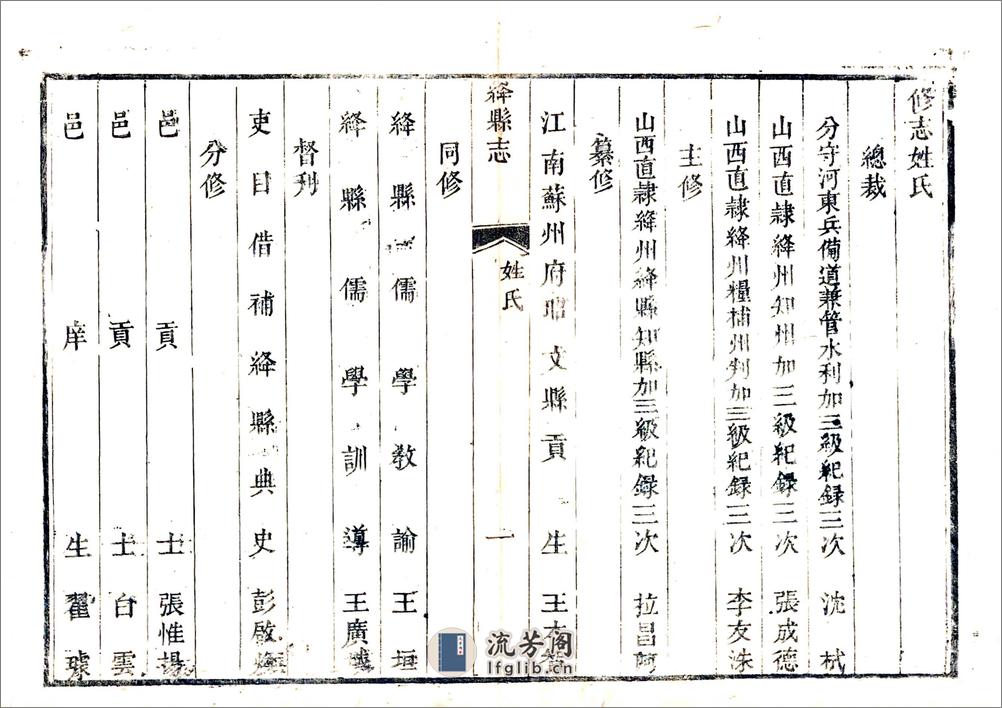 修志姓氏
總裁
分守河東兵備道兼管水利加三級紀録三次 沈栻
山西直隷絳州知州加三級紀録三次 張成德
山西直隷絳州糧捕州判加三級紀録三次 李友洙
主修
山西直隷絳州絳縣知縣加三級紀録三次 拉昌阿
纂修
江南蘇州府昭文縣貢生 王
絳縣志
姓氏
一
同修
絳縣儒學教諭 王垣
絳縣儒學訓導 王廣
督刋
吏目借補絳縣典史 彭啟
分修
邑貢士 張惟揚
邑貢士 白雲
邑庠生 翟璩
流芳阁
lfglib.cn